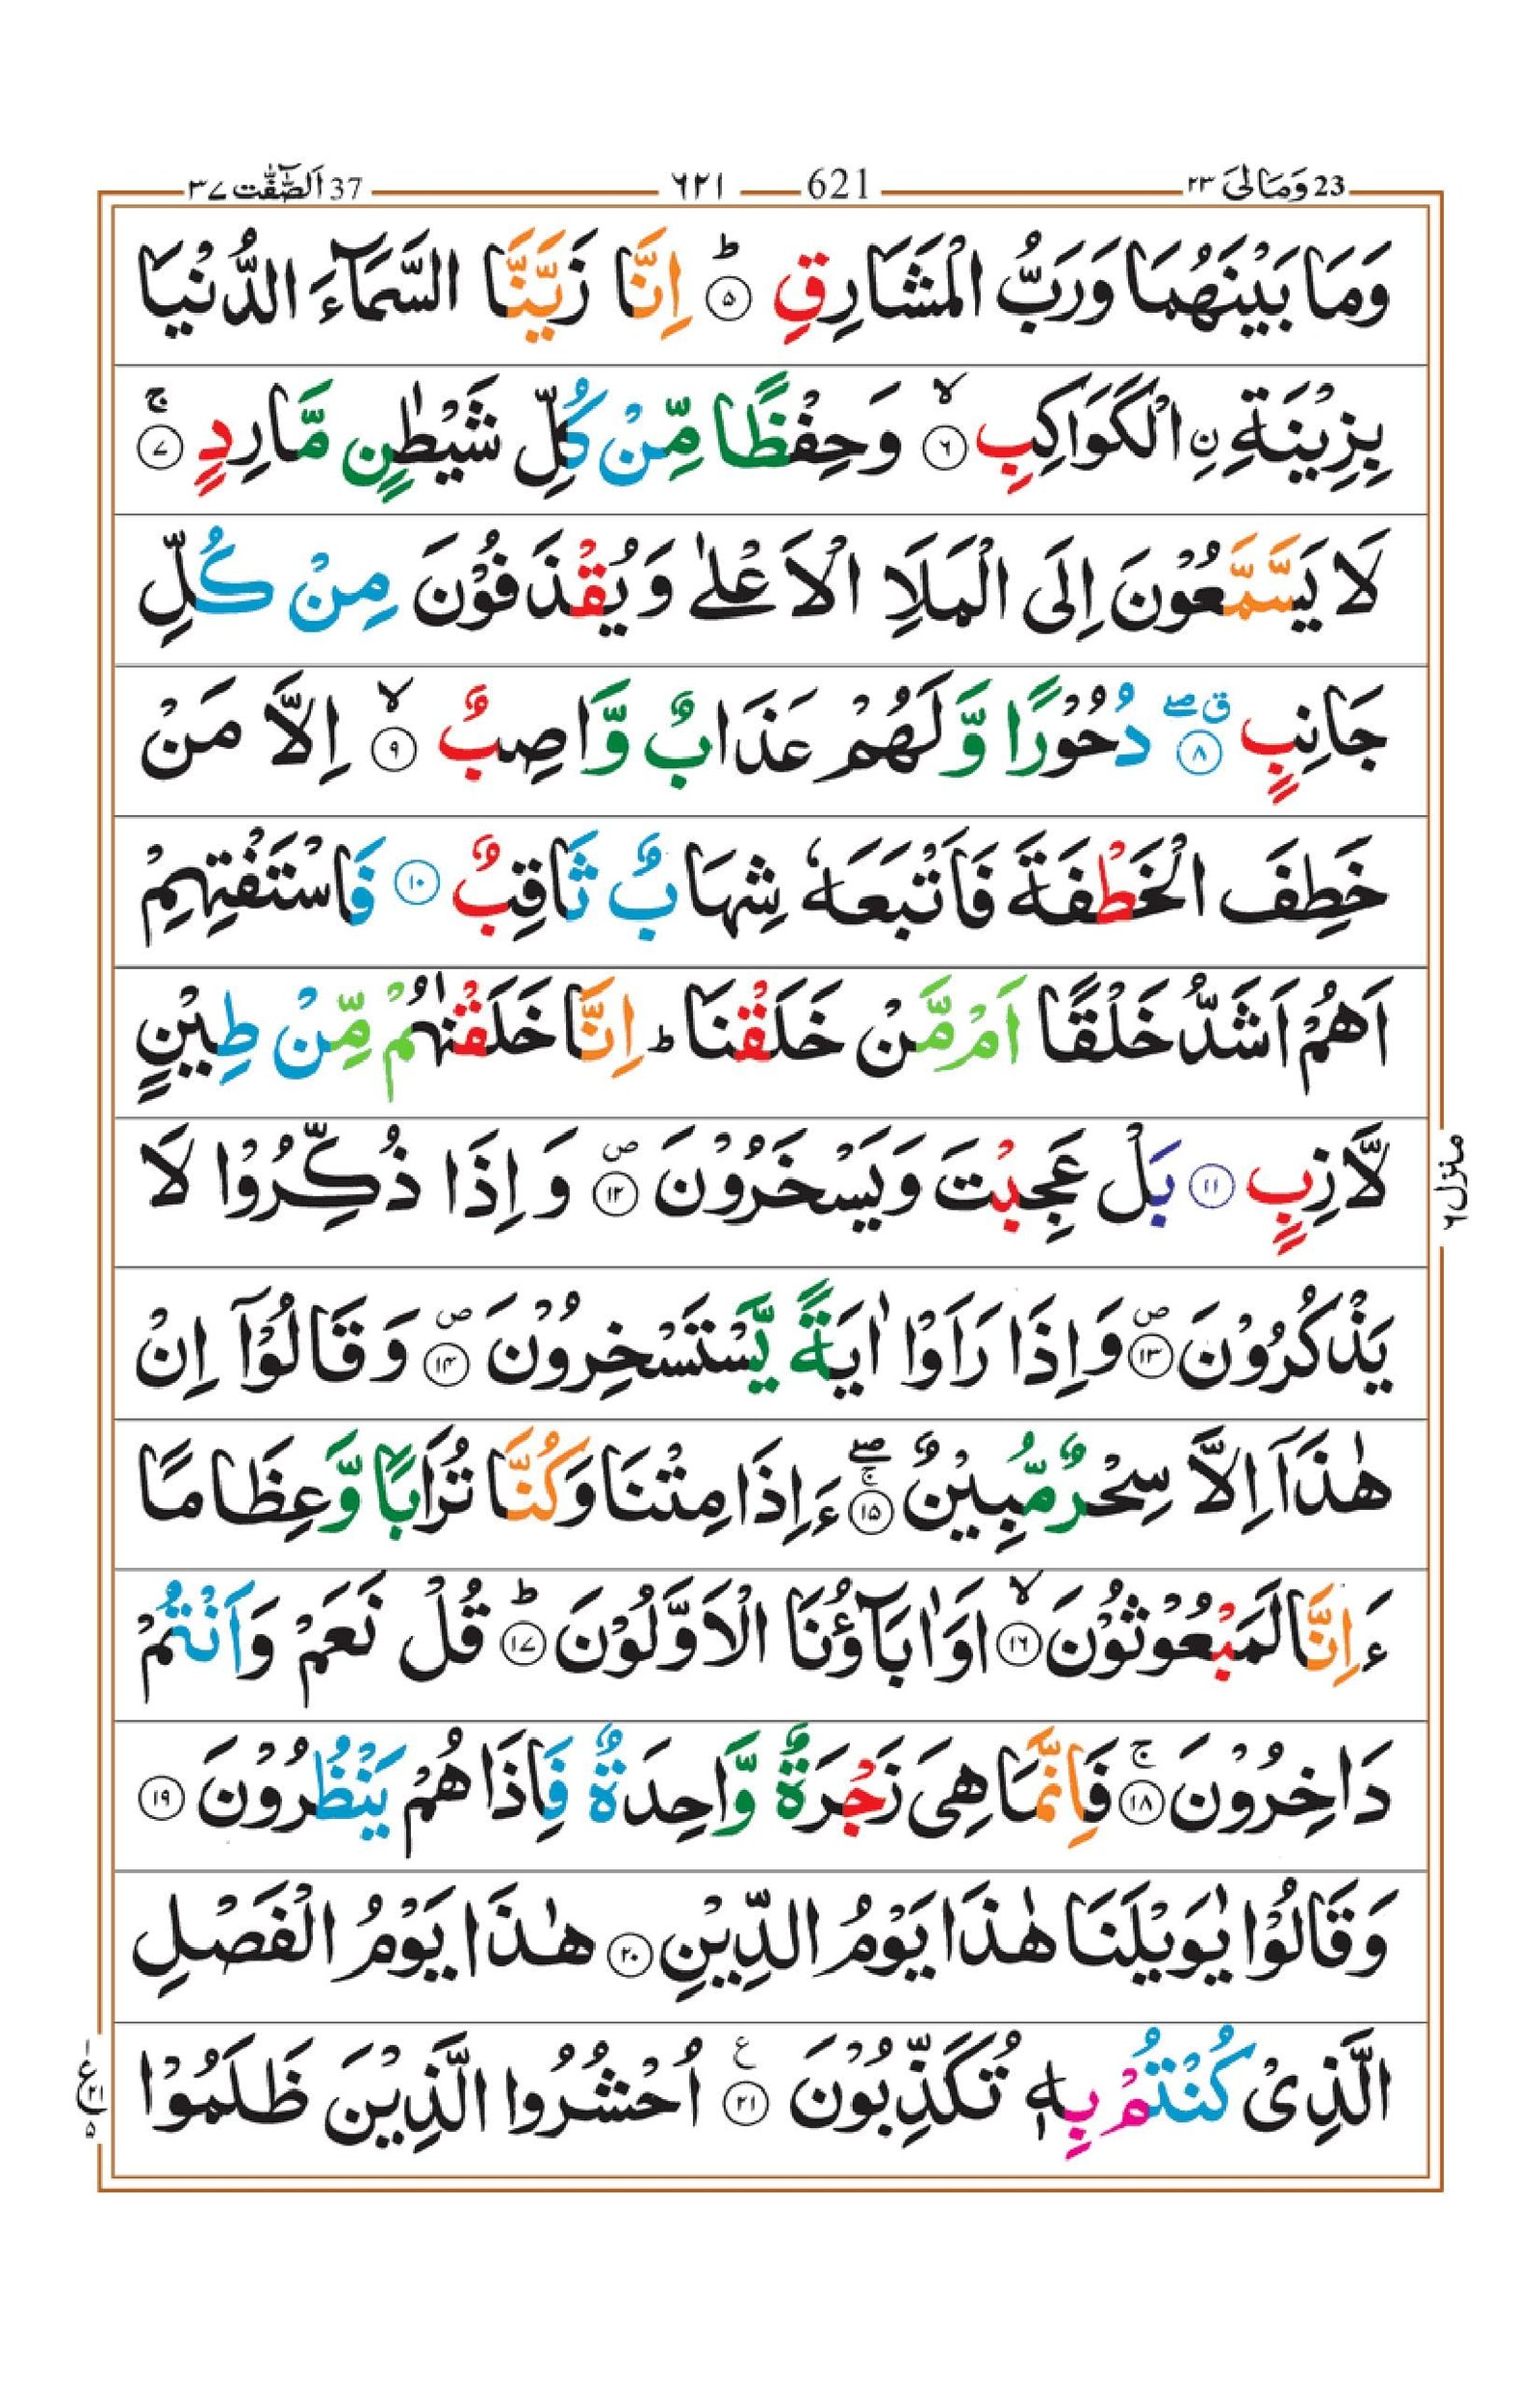 23 وَمَالِیَ ۲۳ 621 ۶۲۱ 37 اَلصّٰٓفّٰت ۳۷
وَمَا بَيْنَهُمَا وَرَبُّ الْمَشَارِقِ ؕ‏﴿۵﴾ اِنَّا زَيَّنَّا السَّمَآءَ الدُّنْيَا
بِزِيْنَةِ ۨالْكَوَاكِبِ ۙ‏﴿۶﴾ وَحِفْظًا مِّنْ كُلِّ شَيْطٰنٍ مَّارِدٍ ۚ‏﴿۷﴾
لَا يَسَّمَّعُوْنَ اِلَى الْمَلَاِ الْاَعْلٰى وَيُقْذَفُوْنَ مِنْ كُلِّ
جَانِبٍ ۖق ﴿۸﴾ دُحُوْرًا وَّلَهُمْ عَذَابٌ وَّاصِبٌ ۙ‏﴿۹﴾ اِلَّا مَنْ
خَطِفَ الْخَطْفَةَ فَاَتْبَعَهٗ شِهَابٌ ثَاقِبٌ ﴿۱۰﴾ فَاسْتَفْتِهِمْ
اَهُمْ اَشَدُّ خَلْقًا اَمْ مَّنْ خَلَقْنَا ؕ اِنَّا خَلَقْنٰهُمْ مِّنْ طِيْنٍ
لَّازِبٍ ﴿۱۱﴾ بَلْ عَجِبْتَ وَيَسْخَرُوْنَ ۪‏﴿۱۲﴾ وَاِذَا ذُكِّرُوْا لَا
يَذْكُرُوْنَ ۪‏﴿۱۳﴾ وَاِذَا رَاَوْا اٰيَةً يَّسْتَسْخِرُوْنَ ۪‏﴿۱۴﴾ وَقَالُوْۤا اِنْ
هٰذَاۤ اِلَّا سِحْرٌ مُّبِيْنٌ ۚۖ‏﴿۱۵﴾ ءَاِذَا مِتْنَا وَكُنَّا تُرَابًا وَّعِظَامًا
ءَاِنَّا لَمَبْعُوْثُوْنَ ۙ‏﴿۱۶﴾ اَوَاٰبَآؤُنَا الْاَوَّلُوْنَ ؕ‏﴿۱۷﴾ قُلْ نَعَمْ وَاَنْتُمْ
دَاخِرُوْنَ ۚ‏﴿۱۸﴾ فَاِنَّمَا هِىَ زَجْرَةٌ وَّاحِدَةٌ فَاِذَا هُمْ يَنْظُرُوْنَ ﴿۱۹﴾
وَقَالُوْا يٰوَيْلَنَا هٰذَا يَوْمُ الدِّيْنِ ﴿۲۰﴾ هٰذَا يَوْمُ الْفَصْلِ
الَّذِىْ كُنْتُمْ بِهٖ تُكَذِّبُوْنَ ﴿۲۱﴾ ع اُحْشُرُوا الَّذِيْنَ ظَلَمُوْا
منزل ۶
۱ ع ۲۱ ۵